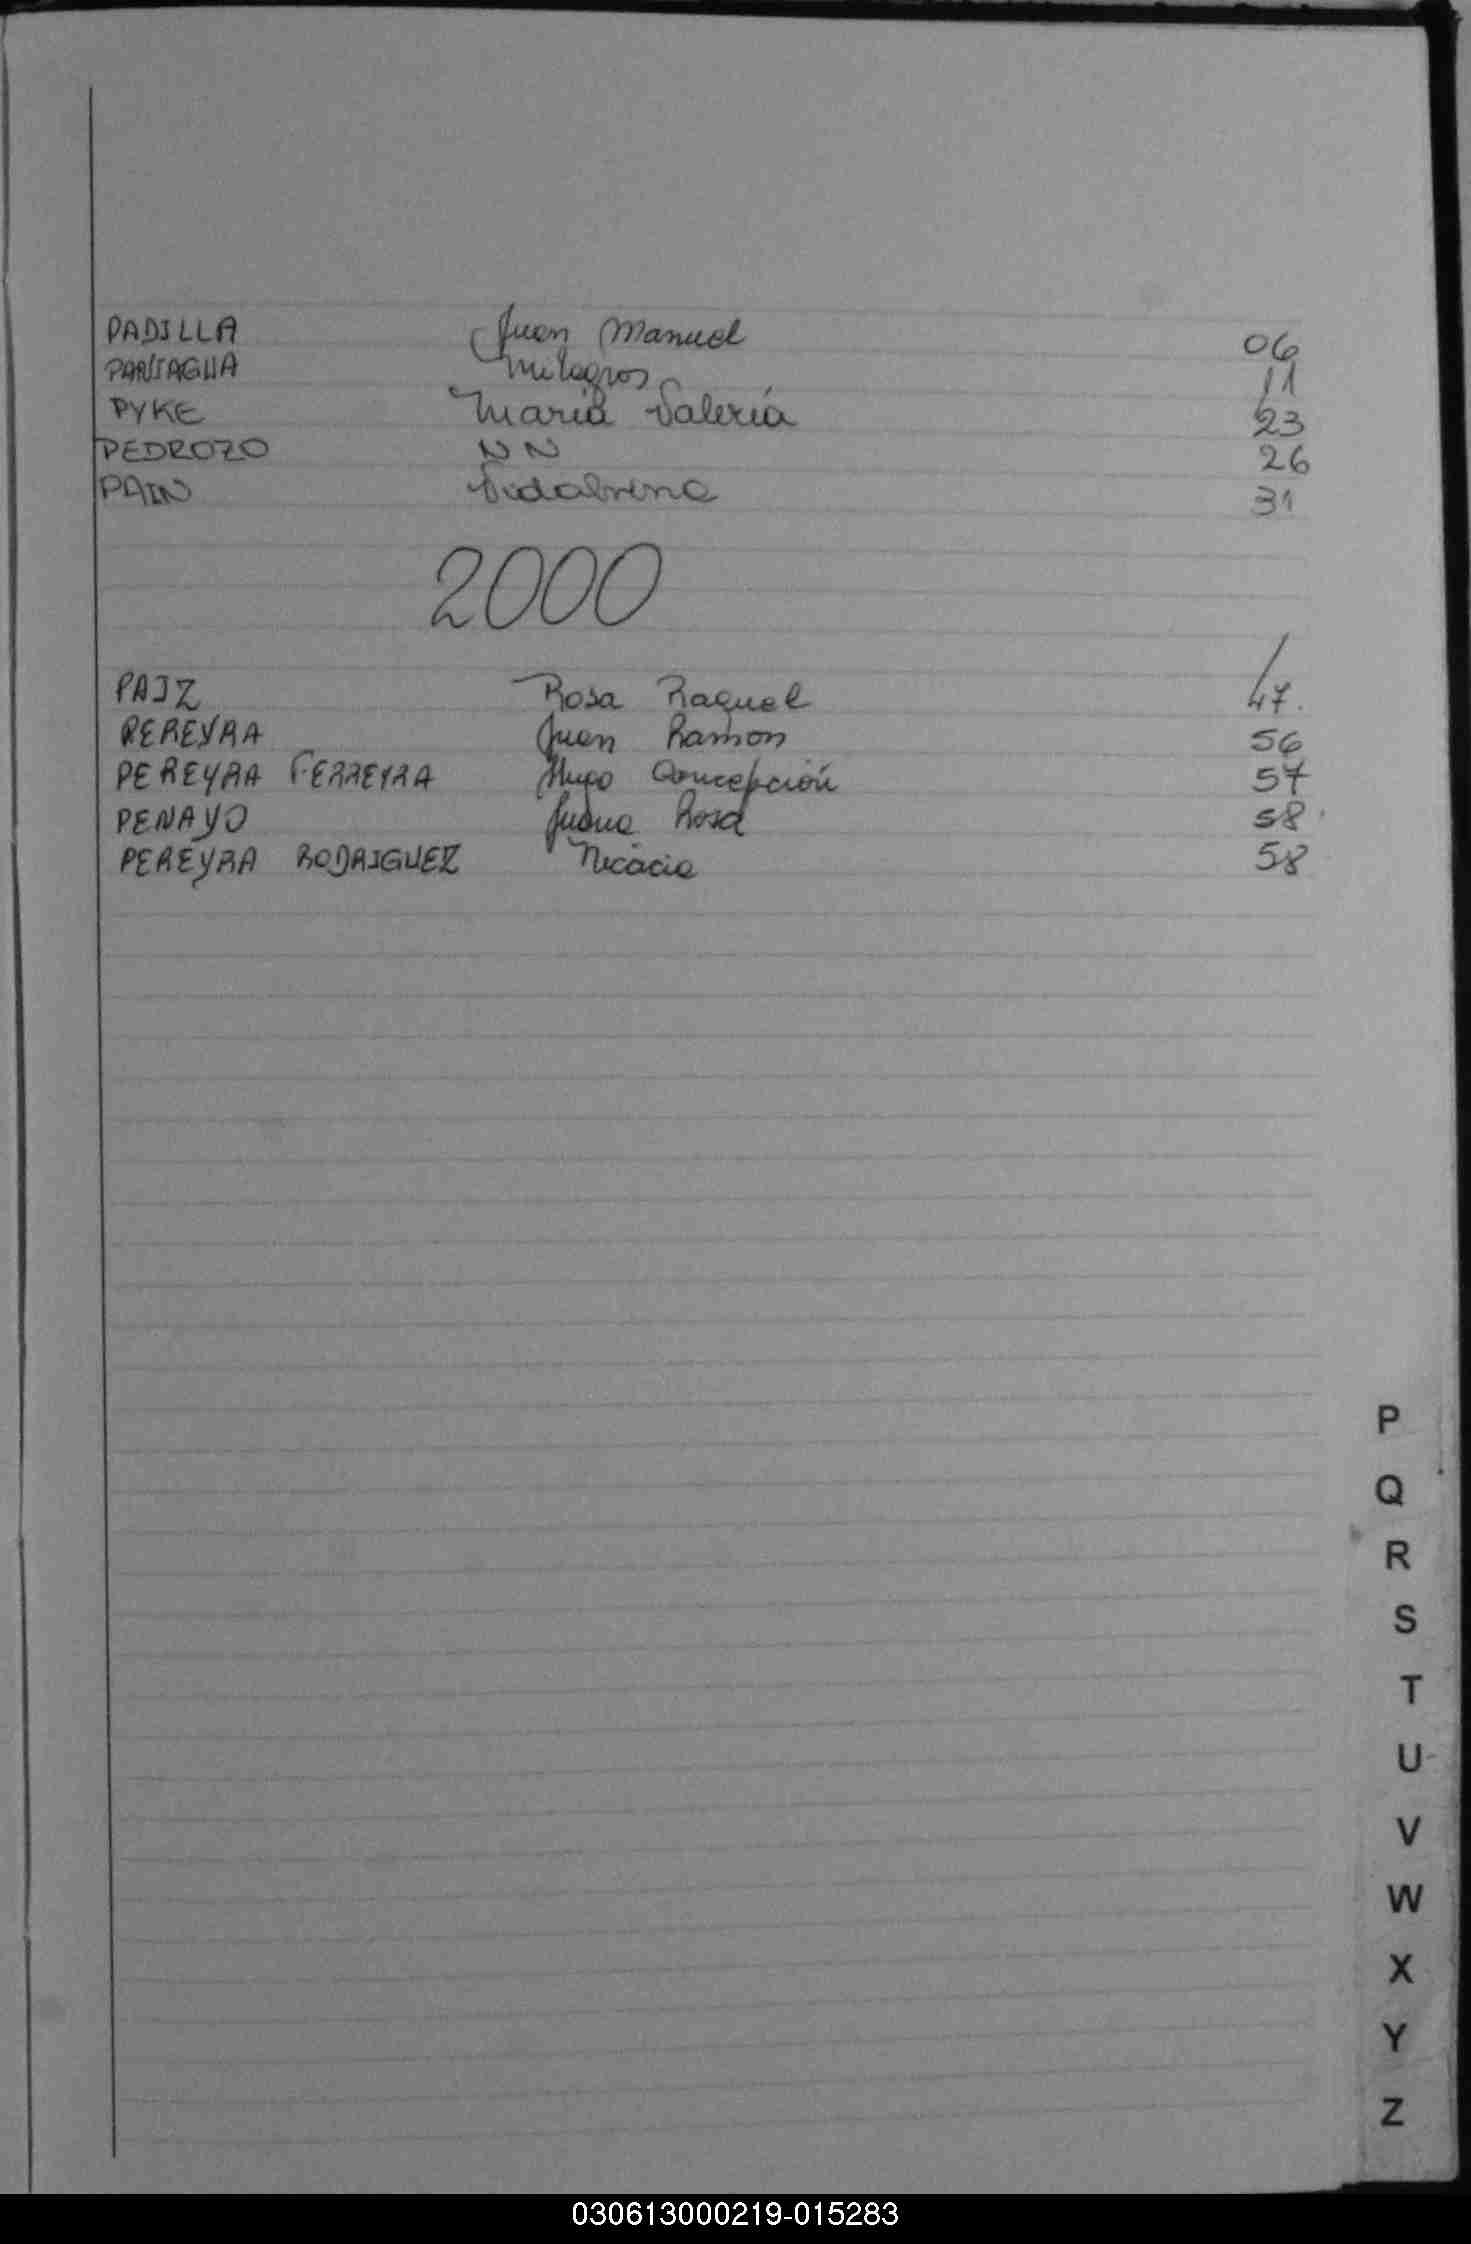 PADILLA Juan Manuel 06
PANIAGUA Milagros 11
PYKE María Valeria 23
PEDROZO NN 26
PAIN 31
2000
PAIZ Rosa Raquel 47.
PEREYRA Juan Ramon 56
PEREYRA FERREYRA Hugo Concepción 57
PENAYO Juana Rosa 58
PEREYRA RODRIGUEZ Nicacia 58
P
Q
R
S
T
U
V
W
X
Y
Z
030613000219-015283